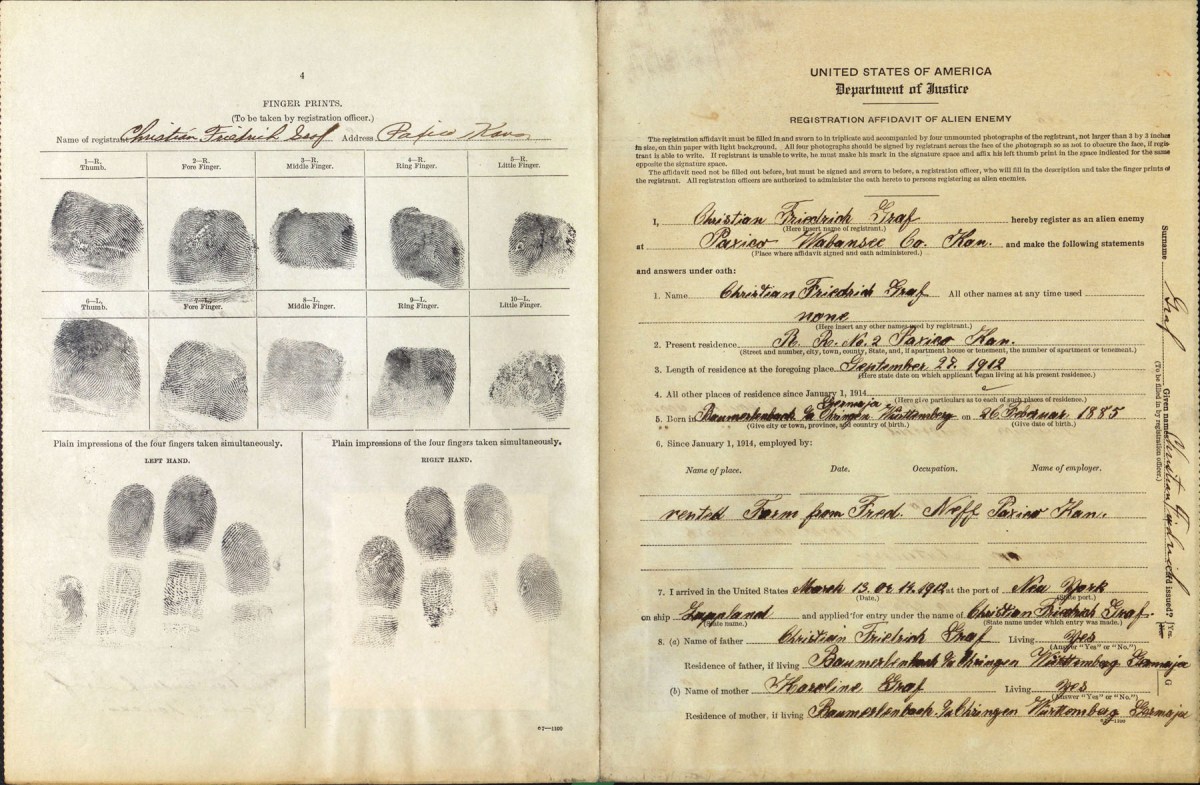 4
FINGER PRINTS.
(To be taken by registration officer.)
Name of registrant Christian Friedrich Graf Address Paxico Kans
1—R. Thumb. 2—R. Fore Finger. 3—R. Middle Finger. 4—R. Ring Finger. 5—R. Little Finger.
6—L. Thumb. 7—L. Fore Finger. 8—L. Middle Finger. 9—L. Ring Finger. 10—L. Little Finger.
Plain impressions of the four fingers taken simultaneously. Plain impressions of the four fingers taken simultaneously.
LEFT HAND. RIGHT HAND.
67—1160
UNITED STATES OF AMERICA
Department of Justice
REGISTRATION AFFIDAVIT OF ALIEN ENEMY
The registration affidavit must be filled in and sworn to in triplicate and accompanied by four unmounted photographs of the registrant, not larger than 3 by 3 inches
in size, on thin paper with light background. All four photographs should be signed by registrant across the face of the photograph so as not to obscure the face, if regis-
trant is able to write. If registrant is unable to write, he must make his mark in the signature space and affix his left thumb print in the space indicated for the same
opposite the signature space.
The affidavit need not be filled out before, but must be signed and sworn to before, a registration officer, who will fill in the description and take the finger prints of
the registrant. All registration officers are authorized to administer the oath hereto to persons registering as alien enemies.
I, Christian Friedrich Graf hereby register as an alien enemy
(Here insert name of registrant.)
at Paxico Wabansee Co. Kan. and make the following statements
(Place where affidavit signed and oath administered.)
and answers under oath:
1. Name Christian Friedrich Graf All other names at any time used
none
(Here insert any other names used by registrant.)
2. Present residence R. R. No. 2 Paxico Kan.
(Street and number, city, town, county, State, and, if apartment house or tenement, the number of apartment or tenement.)
3. Length of residence at the foregoing place September 28. 1912
(Here state date on which applicant began living at his present residence.)
4. All other places of residence since January 1, 1914
(Here give particulars as to each of such places of residence.)
Germaja
5. Born in Öhringen Württemberg on 26 Februar 1885
(Give city or town, province, and country of birth.) (Give date of birth.)
6. Since January 1, 1914, employed by:
Name of place. Date. Occupation. Name of employer.
rented Farm from Fred. Neff Paxico Kan.
7. I arrived in the United States March 13. or 14. 1912 at the port of New York
(Date,) (State port.)
on ship Lappland and applied for entry under the name of Christian Friedrich Graf.
(State name.) (State name under which entry was made.)
8. (a) Name of father Christian Friedrich Graf Living Yes
(Answer "Yes" or "No.")
Residence of father, if living Öhringen Württemberg Germaja
(b) Name of mother Karoline Graf Living Yes
(Answer "Yes" or "No.")
Residence of mother, if living Öhringen Württemberg Germaja
67—1160
Surname Graf Given names Christian Friedrich
(To be filled in by registration officer.)